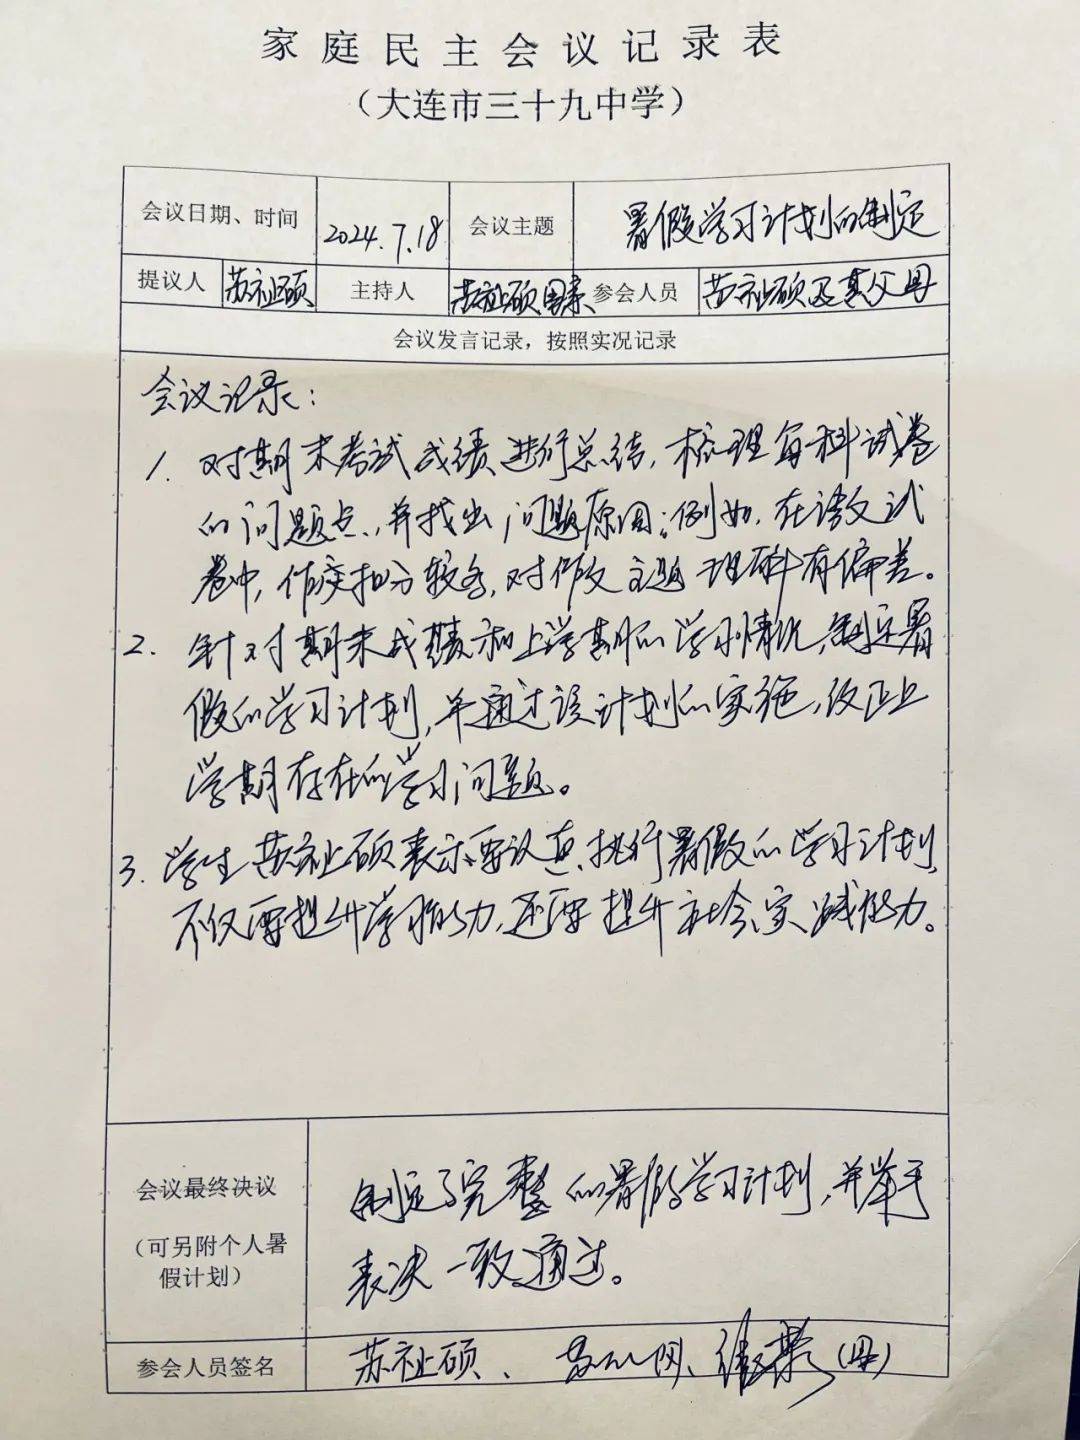 家庭民主会议记录表
（大连市三十九中学）
会议日期、时间 2024.7.18 会议主题 暑假学习计划的制定
提议人 苏祉硕 主持人 苏祉硕 参会人员 苏祉硕及其父母
会议发言记录，按照实况记录
会议记录：
1. 对期末考试成绩进行总结，梳理每科试卷
的问题点，并找出问题原因；例如，在语文试
卷中，作文扣分较多，对作文主题理解有偏差。
2. 针对期末成绩和上学期的学习情况，制定暑
假的学习计划，并通过该计划的实施，改正上
学期存在的学习问题。
3. 学生苏祉硕表示要认真执行暑假的学习计划，
不仅要提升学习能力，还要提升社会实践能力。
会议最终决议
（可另附个人暑
假计划）
制定了完整的暑假学习计划，并举手
表决一致通过。
参会人员签名 苏祉硕、 (母)